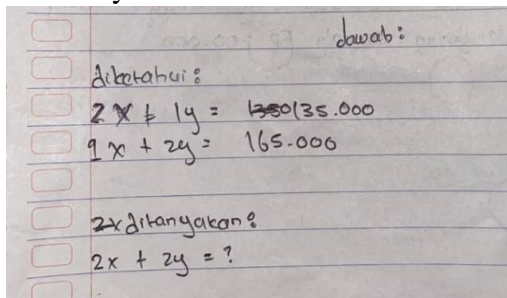 Jawab:
diketahui:
2x + 1y = 135.000
1x + 2y = 165.000
ditanyakan:
2x + 2y = ?